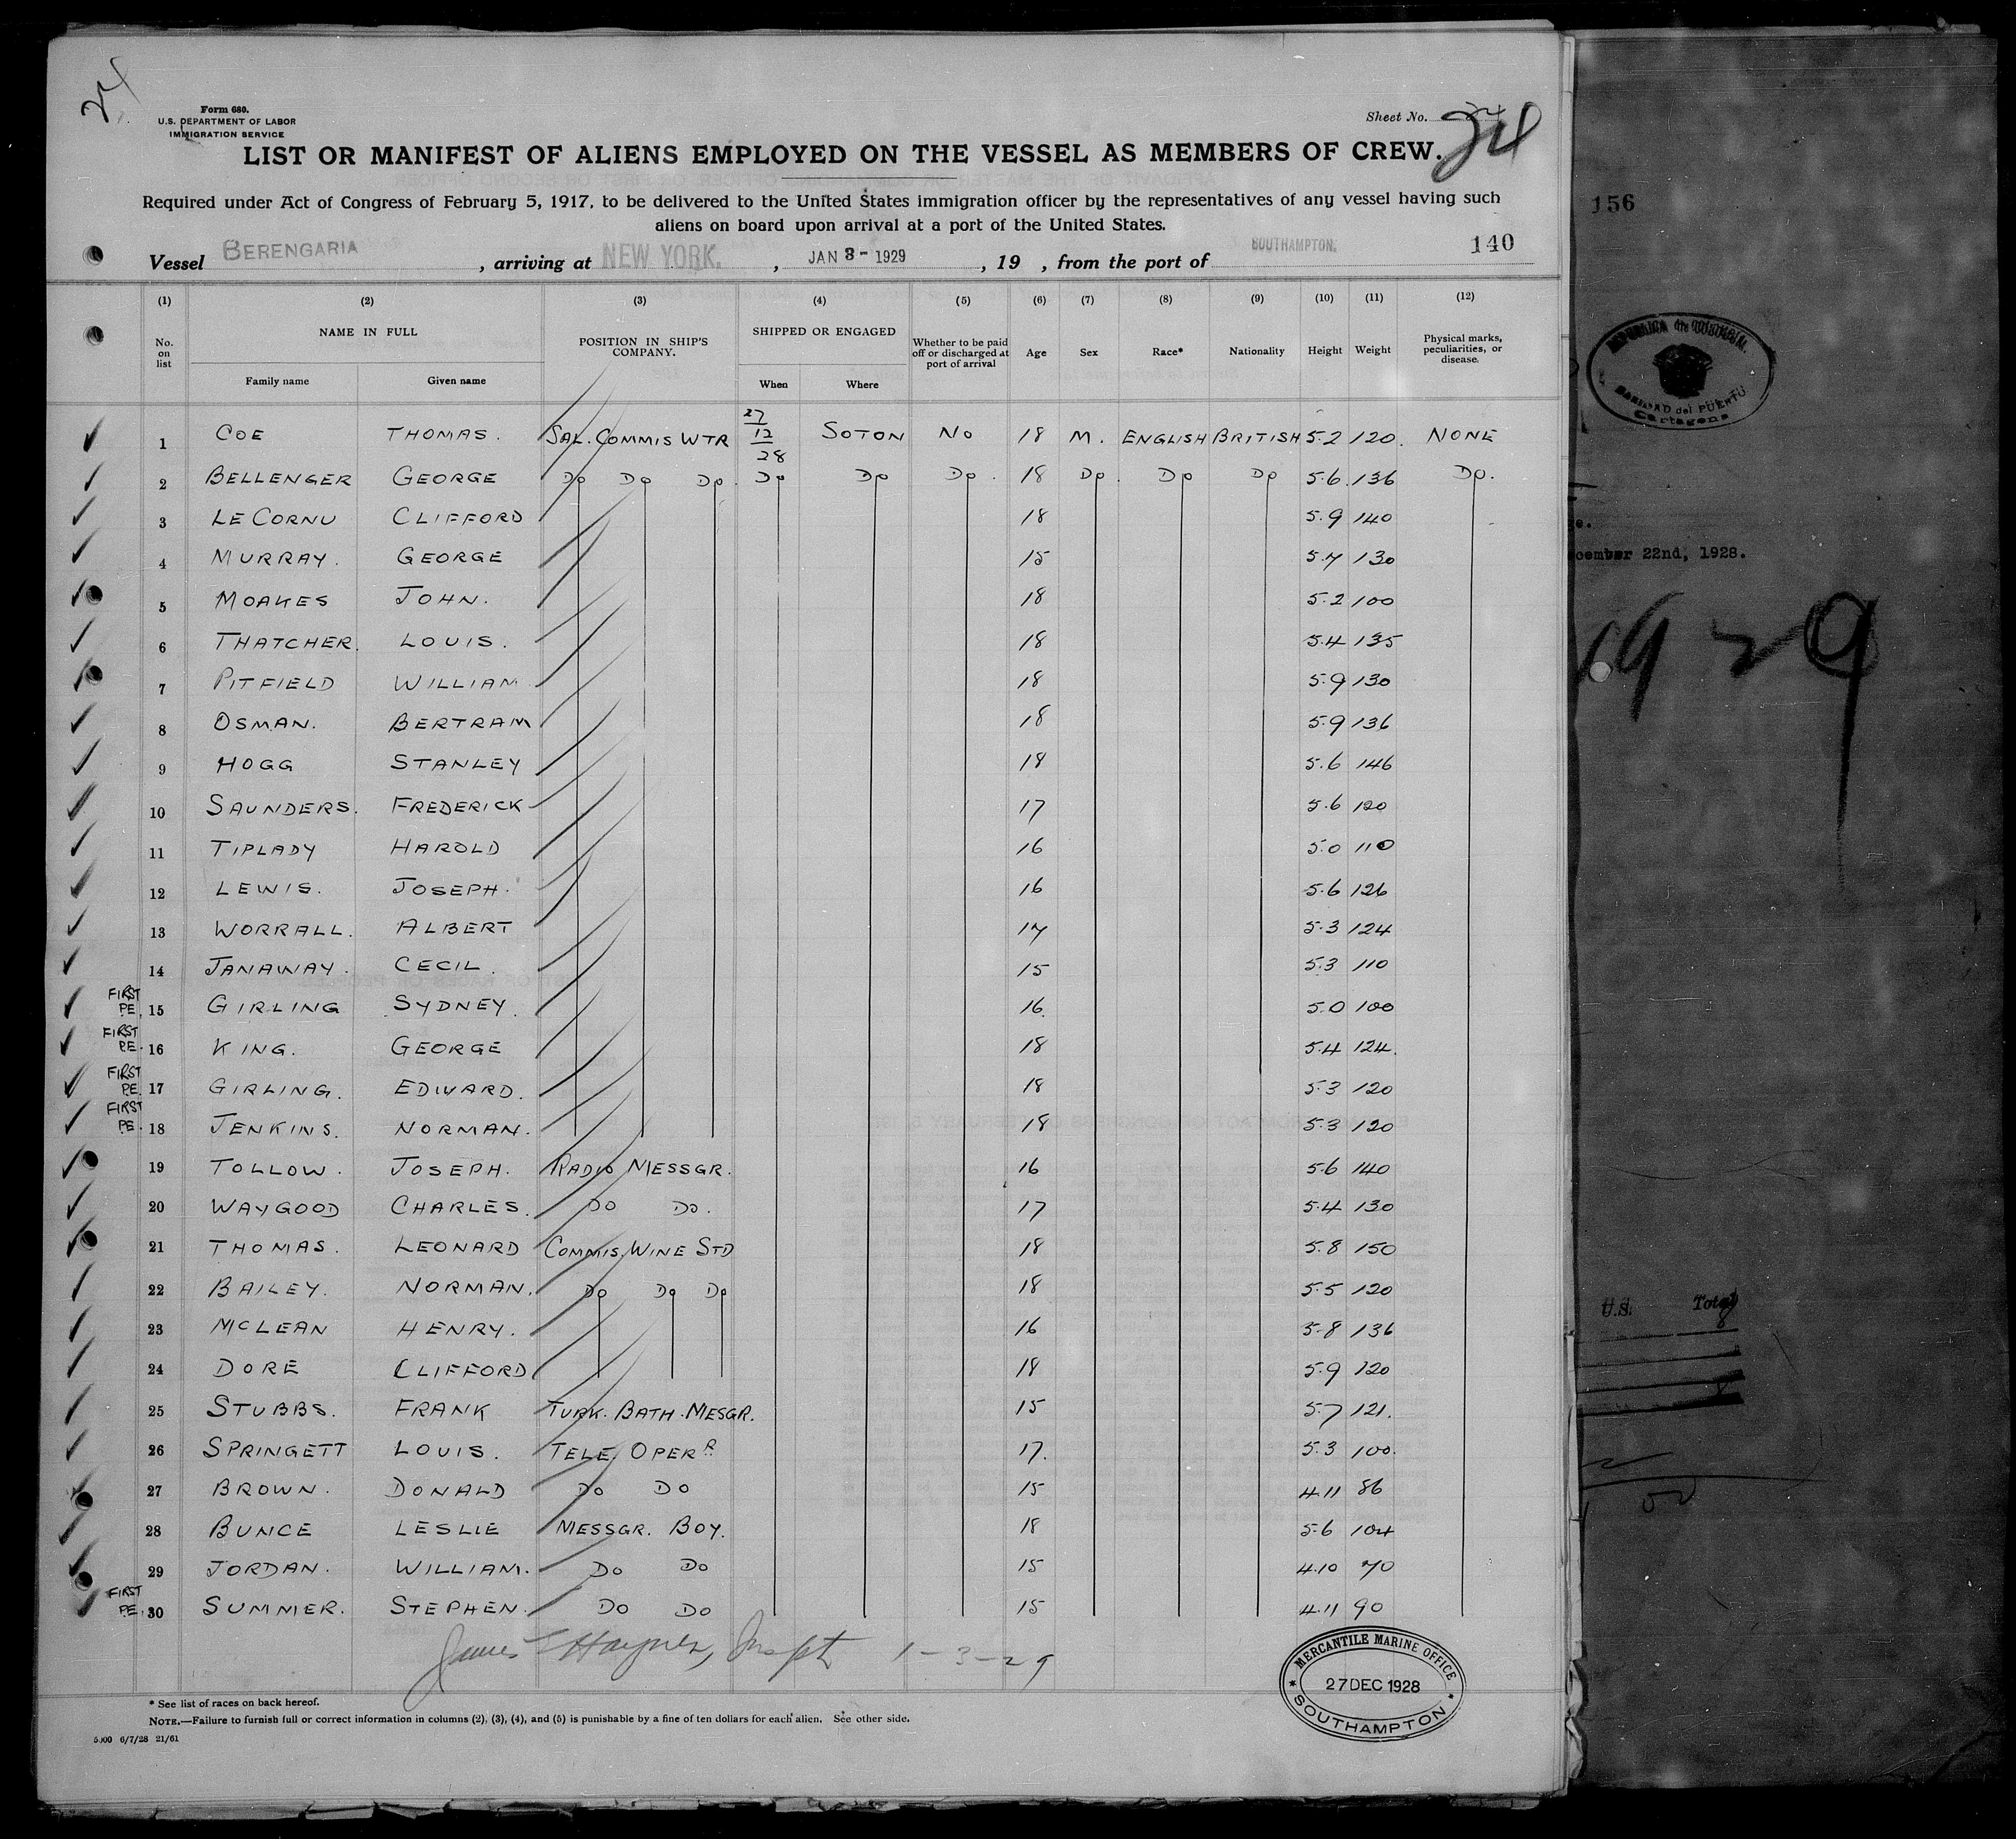 24
Form 680.
U.S. DEPARTMENT OF LABOR
IMMIGRATION SERVICE
Sheet No. 24
24
LIST OR MANIFEST OF ALIENS EMPLOYED ON THE VESSEL AS MEMBERS OF CREW.
Required under Act of Congress of February 5, 1917, to be delivered to the United States immigration officer by the representatives of any vessel having such
aliens on board upon arrival at a port of the United States.
140
Vessel BERENGARIA, arriving at NEW YORK., JAN 3 - 1929, 19 , from the port of SOUTHAMPTON.
(1) (2) (3) (4) (5) (6) (7) (8) (9) (10) (11) (12)
No. on list NAME IN FULL POSITION IN SHIP'S COMPANY. SHIPPED OR ENGAGED Whether to be paid off or discharged at port of arrival Age Sex Race* Nationality Height Weight Physical marks, peculiarities, or disease.
Family name Given name When Where
1 COE THOMAS. SAL. COMMIS WTR 27/12/28 SOTON NO 18 M. ENGLISH BRITISH 5.2 120. NONE
2 BELLENGER GEORGE DO DO DO. DO DO DO. 18 DO. DO DO 5.6. 136 DO.
3 LE CORNU CLIFFORD 18 5.9 140
4 MURRAY. GEORGE 15 5.7 130
5 MOAKES JOHN. 18 5.2 100
6 THATCHER. LOUIS. 18 5.4 135
7 PITFIELD WILLIAM 18 5.9 130
8 OSMAN. BERTRAM 18 5.9 136
9 HOGG STANLEY 18 5.6 146
10 SAUNDERS. FREDERICK 17 5.6 120
11 TIPLADY HAROLD 16 5.0 110
12 LEWIS. JOSEPH. 16 5.6 126
13 WORRALL. ALBERT 17 5.3 124
14 JANAWAY. CECIL. 15 5.3 110
FIRST PE. 15 GIRLING SYDNEY. 16. 5.0 100
FIRST P.E. 16 KING. GEORGE 18 5.4 124.
FIRST P.E. 17 GIRLING. EDWARD. 18 5.3 120
FIRST PE. 18 JENKINS. NORMAN. 18 5.3 120
19 TOLLOW. JOSEPH. RADIO MESSGR. 16 5.6 140
20 WAYGOOD CHARLES. DO DO. 17 5.4 130
21 THOMAS. LEONARD COMMIS. WINE STD 18 5.8 150
22 BAILEY. NORMAN. DO DO DO 18 5.5 120
23 MCLEAN HENRY. 16 5.8 136
24 DORE CLIFFORD 18 5.9 120
25 STUBBS. FRANK TURK. BATH. MESGR. 15 5.7 121.
26 SPRINGETT LOUIS. TELE. OPERR 17. 5.3 100.
27 BROWN. DONALD DO DO 15 4.11 86
28 BUNCE LESLIE MESSGR. BOY. 18 5.6 104
29 JORDAN. WILLIAM. DO DO 15 4.10 70
FIRST PE. 30 SUMMER. STEPHEN. DO DO 15 4.11 90
1-3-29
MERCANTILE MARINE OFFICE
27 DEC 1928
SOUTHAMPTON
* See list of races on back hereof.
NOTE.—Failure to furnish full or correct information in columns (2), (3), (4), and (5) is punishable by a fine of ten dollars for each alien. See other side.
5000 6/7/28 21/61
156
SANIDAD del PUERTO
Cartagena
22nd, 1928.
1929
U.S. Total